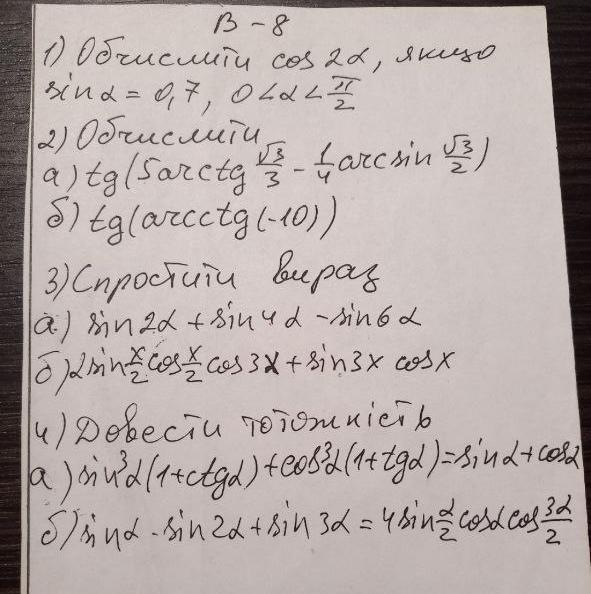 В-8
1) Обчислити cos 2α, якщо
sin α = 0,7, 0 < α < π/2
2) Обчислити
а) tg(5arctg √3/3 - 1/4 arcsin √3/2)
б) tg(arcctg(-10))
3) Спростити вираз
а) sin 2α + sin 4α - sin 6α
б) 2 sin x/2 cos x/2 cos 3x + sin 3x cos x
4) Довести тотожність
а) sin³α(1+ctgα)+cos³α(1+tgα)=sin α+cos α
б) sin α - sin 2α + sin 3α = 4 sin α/2 cos α cos 3α/2